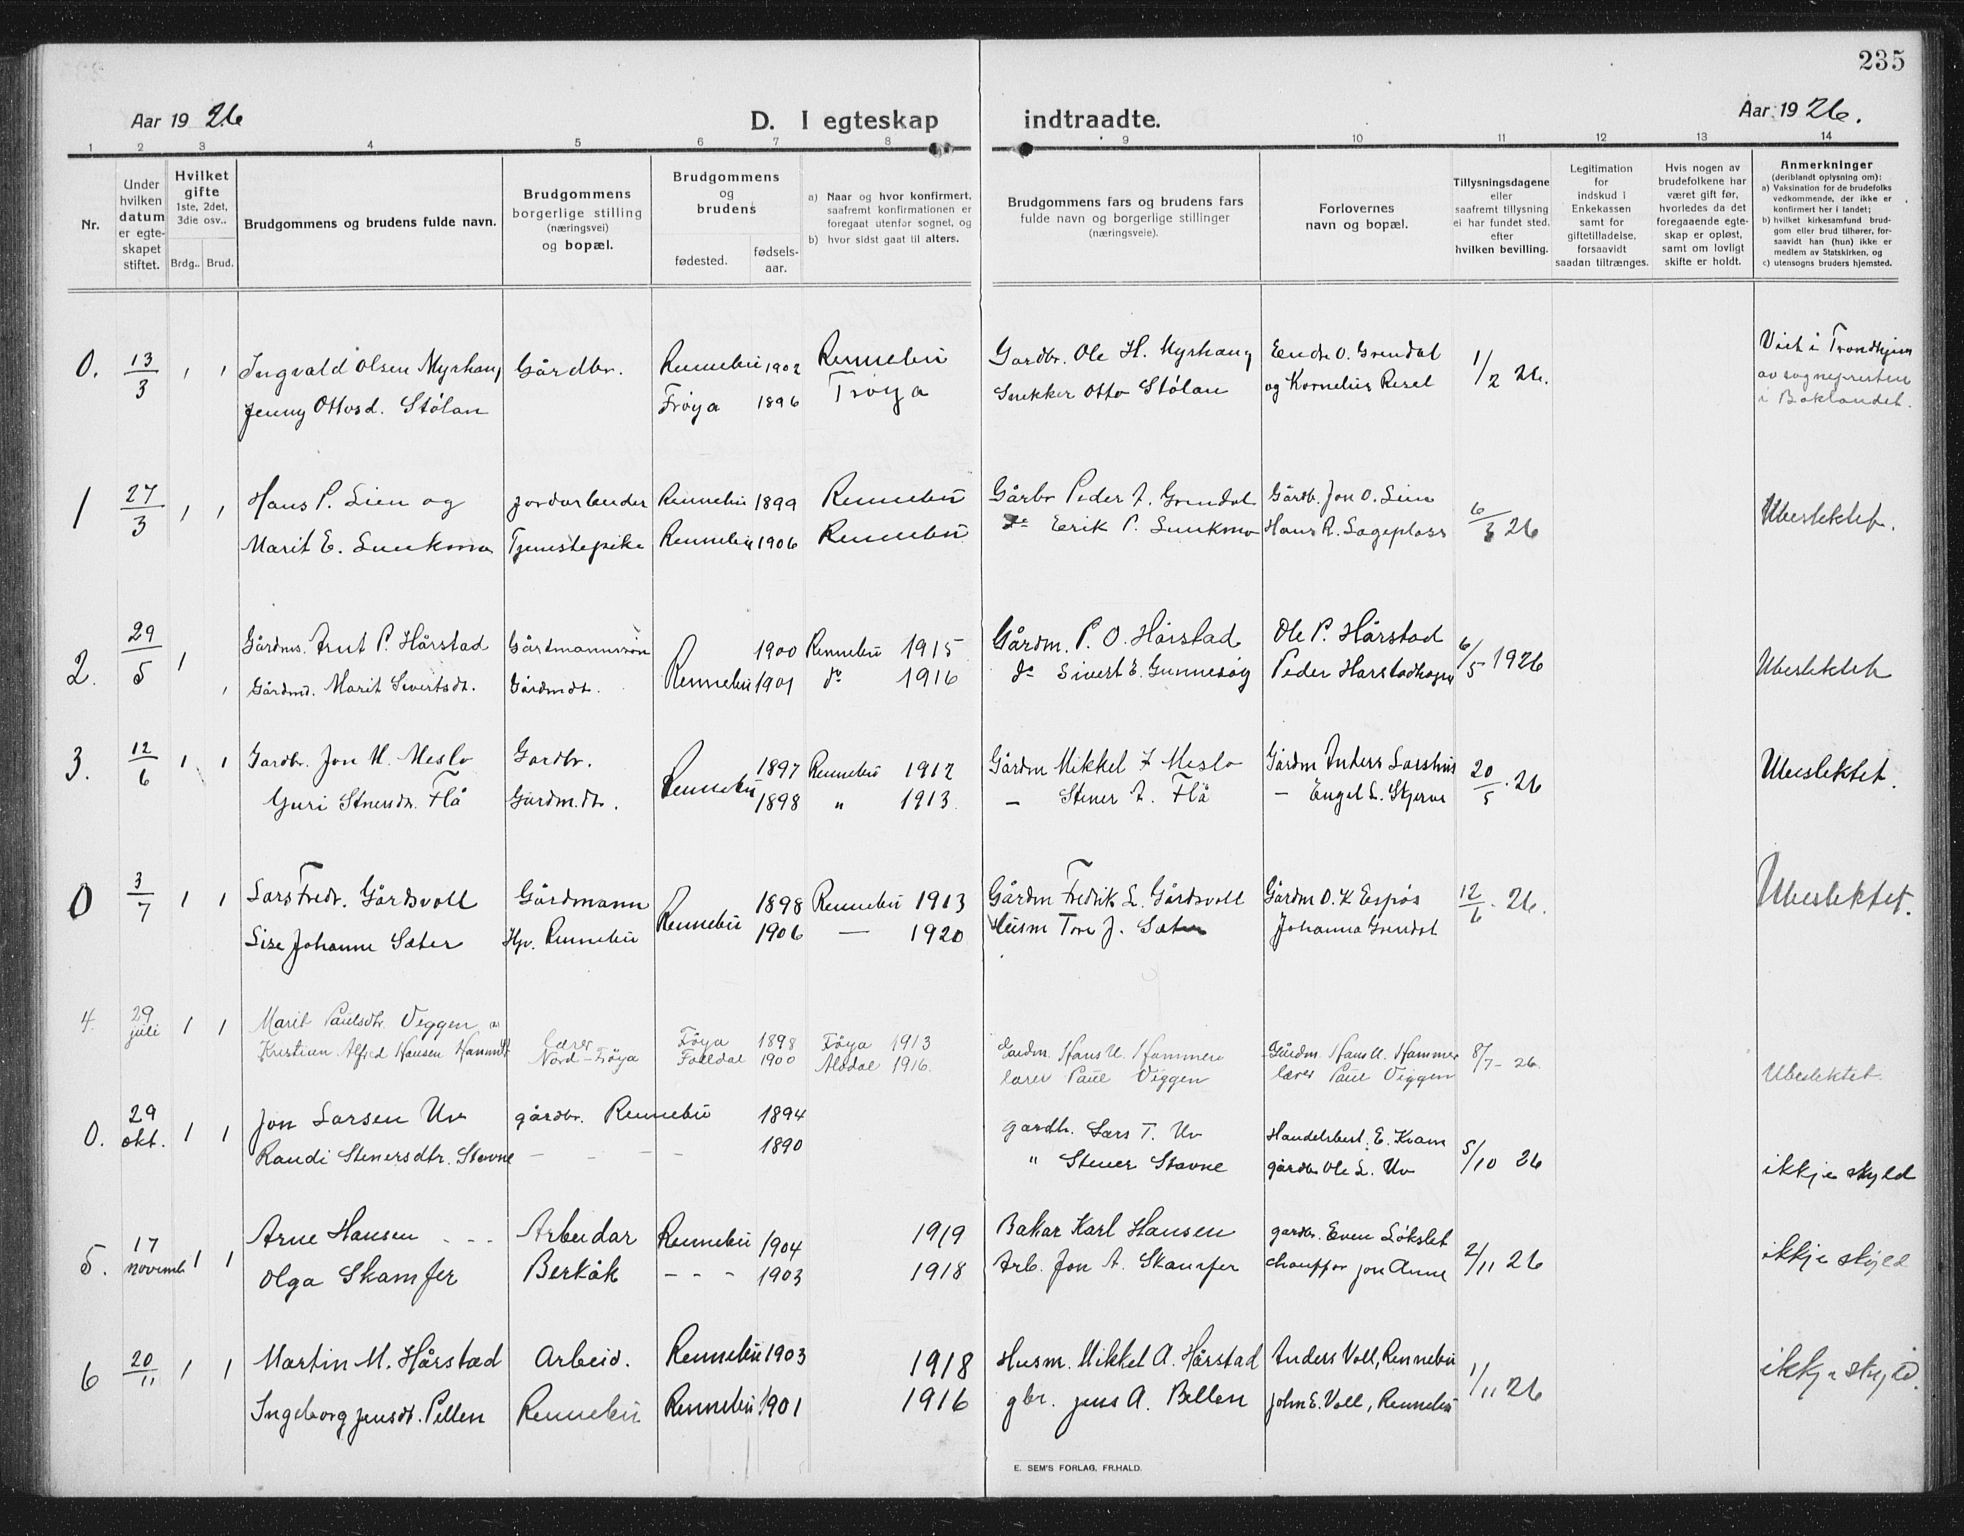 235
Aar 1926
D. I egteskap indtraadte.
Aar 1926.
1 2 3 4 5 6 7 8 9 10 11 12 13 14
Nr.
Under hvilken datum er egteskapet stiftet.
Hvilket gifte 1ste, 2det, 3die osv..
Brdg.. Brud.
Brudgommens og brudens fulde navn.
Brudgommens borgerlige stilling (næringsvei) og bopæl.
Brudgommens og brudens
fødested.
fødsels-aar.
a) Naar og hvor konfirmert, saafremt konfirmationen er foregaat utenfor sognet, og
b) hvor sidst gaat til alters.
Brudgommens fars og brudens fars fulde navn og borgerlige stillinger (næringsveie).
Forlovernes navn og bopæl.
Tillysningsdagene eller saafremt tillysning ei har fundet sted, efter hvilken bevilling.
Legitimation for indskud i Enkekassen samt for giftetilladelse, forsaavidt saadan tiltrænges.
Hvis nogen av brudefolkene har været gift før, hvorledes da det foregaaende egteskap er opløst, samt om lovligt skifte er holdt.
Anmerkninger (deriblandt oplysning om):
a) Vaksination for de brudefolks vedkommende, der ikke er konfirmert her i landet;
b) hvilket kirkesamfund brudgom eller brud tilhører, forsaavidt han (hun) ikke er medlem av Statskirken, og
c) utensogns bruders hjemsted.
0. 13/3 1 1 Ingvald Olsen Myrhaug Gårdbr. Rennebu 1902 Rennebu Gardbr. Ole H. Myrhaug Endre O. Grendal 1/2 26. Viet i Trondhjem
Jenny Ottosd. Stölan Fröya 1896 Fröya Snekker Otto Stölan og Kornelius Resel av sognepresten
i Baklandet.
1 27/3 1 1 Hans P. Lien og Jordarbeider Rennebu 1899 Rennebu Gårbr Peder A. Grendal Gårdb. Jon O. Lien 6/3 26 Ubeslektet.
Marit E. Lunkmo Tjenestepike Rennebu 1906 Rennebu do Eerik P. Lunkmo Hans R. Lageplass
2. 29/5 1 Gårdms. Arnt P. Hårstad Gårdmannssön 1900 Rennebu 1915 Gårdm. P. O. Hårstad Ole P. Hårstad 6/5 1926 Ubeslektet
1 Gårdmd. Marit Sivertsdt. Gårdmdt. Rennebu 1901 do 1916 do Sivert E. Gunnesög Peder Harstadhagen
3. 12/6 1 1 Gardbr. Jon M. Meslo Gardbr. 1897 Rennebu 1912 Gårdm Mikkel J Meslo Gårdm Anders 20/5 . 26 Ubeslektet.
Guri Stnersdr. Flå Gårdm.dt. Rennebu 1898 " 1913. – Stener A. Flå – Engel L. Skjerve
0 3/7 1 1 Lars Fredr. Gårdsvoll Gårdmann 1898 Rennebu 1913 Gårdm Fredrik L. Gårdsvoll Gårdm O. K Espås 12/6 . 26. Ubeslektet.
Lise Johanne Sæter Hjv. Rennebu Rennebu 1906 — 1920 Husm Tore J. Sæter Johanna Grendal
4. 29 juli 1 1 Marit Paulsdtr. Viggen Lærer Föya 1898 Föya 1913 Gardm. Hans U. Hammer Gårdm. Hans U. Hammer 8/7 - 26. Ubeslektet.
Kristian Alfred Hansen Nord-Fröya Folldal 1900 Alvdal 1916. lærer Paul Viggen lærer Paul Viggen
0. 29 okt. 1 1 Jon Larsen Uv gårdbr. Rennebu 1894 gardb. Lars T. Uv Handelsbest. E. Kvam 5/10 26 ikkje skyld
Randi Stenersdtr. Stavne – – – – 1890 " Stener Stavne gårdbr Ole L. Uv
5. 17 novemb 1 1 Arne Hansen - - - Arbeidar Rennebu 1904 1919 Bakar Karl Hansen gardbr. Even Lökslet 2/11 26 ikkje skyld
Olga Skamfer Berkåk – – – 1903 1918 Arb. Jon A. Skamfer chauffør Jon Aune
6 20/11 1 1 Martin M. Hårstad Arbeid. Rennebu 1903 1918 Husm. Mikkel A. Hårstad Anders Voll, Rennebu 1/11 26 ikkje skyld.
Ingeborg Jensdt. Pellen Rennebu Rennebu 1901 1916 gbr. Jens A. Bellen John E. Voll, Rennebu
E. SEM'S FORLAG, FR.HALD.